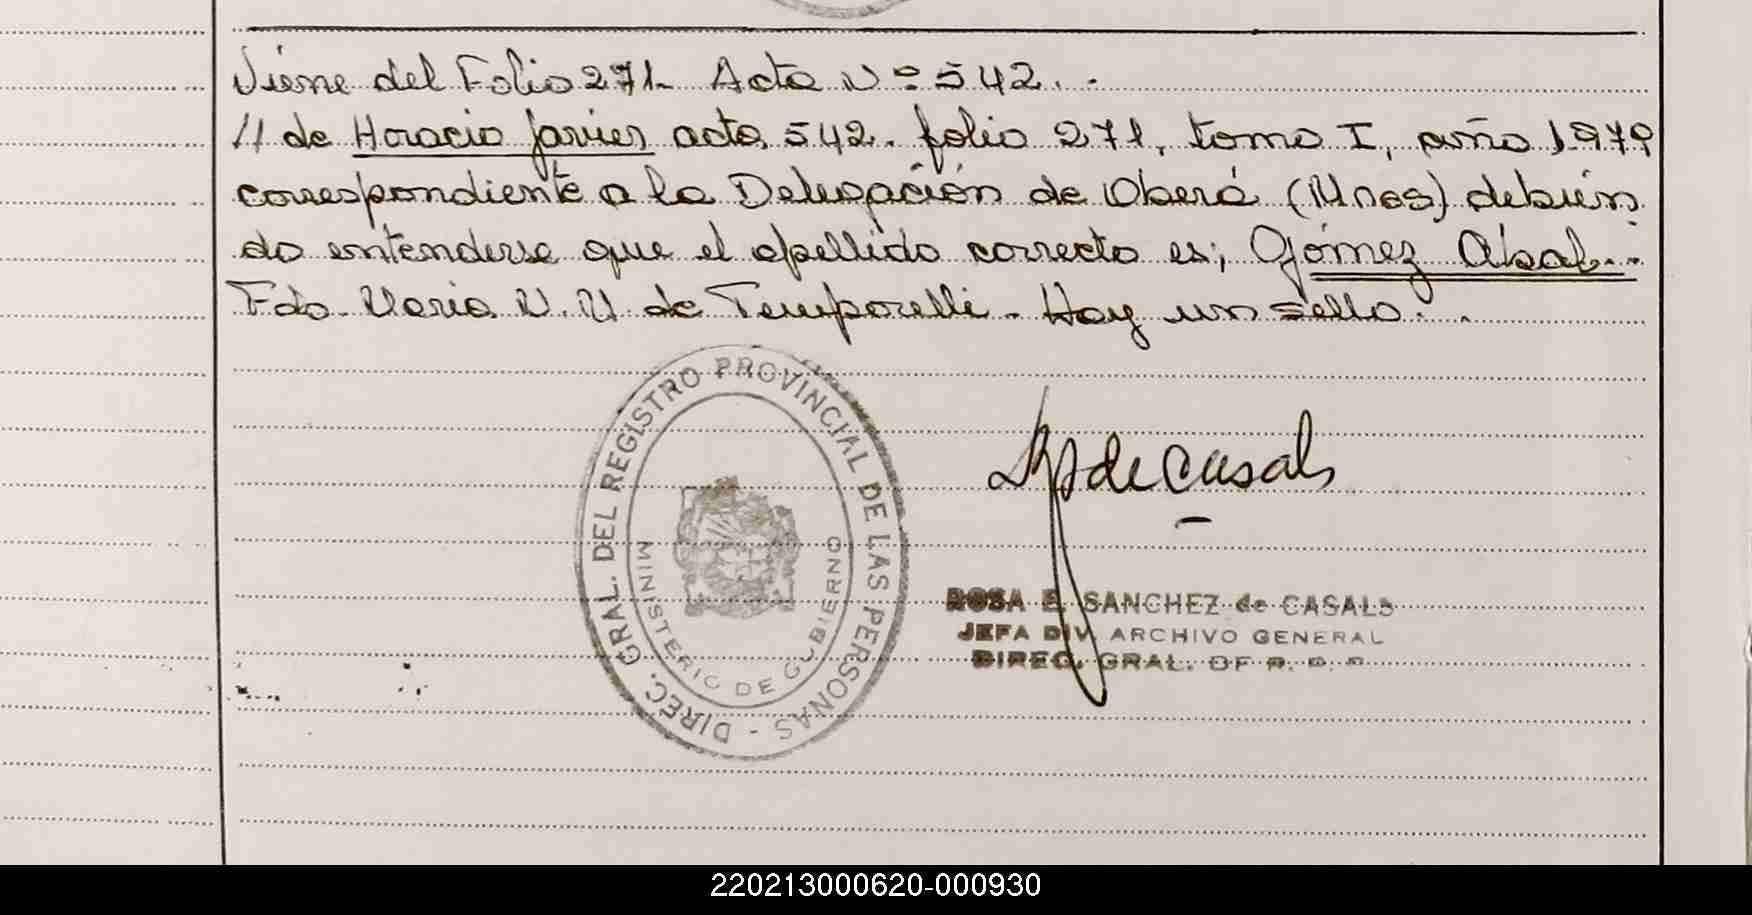 Viene del Folio 271. Acta Nº 542.
// de Horacio Javier acta 542. folio 271, tomo I, año 1979
correspondiente a la Delegación de Oberá (Mnes) debién
do entenderse que el apellido correcto es; Gómez Abal.
Fdo. María N. N. de Temporelli. Hay un sello.
DIREC. GRAL. DEL REGISTRO PROVINCIAL DE LAS PERSONAS -
MINISTERIO DE GOBIERNO
de Casals
ROSA E. SANCHEZ de CASALS
JEFA DIV. ARCHIVO GENERAL
DIREC. GRAL. DE R. P. P.
220213000620-000930